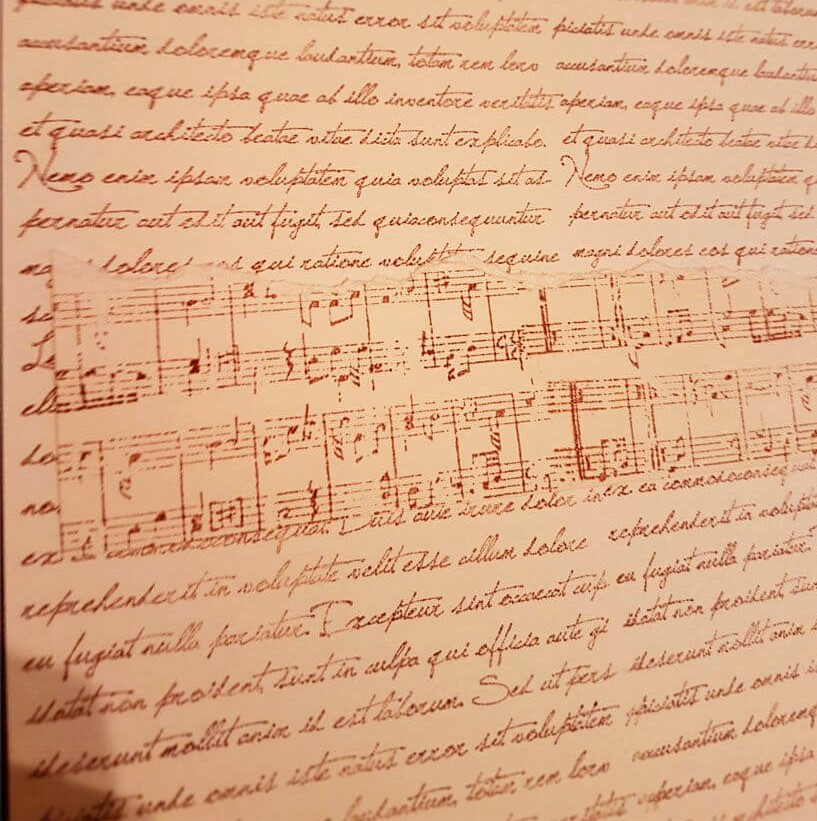 unde omnis iste natus error sit voluptatem piciatis unde omnis iste natus
accusantium doloremque laudantium, totam rem loro accusantium doloremque laudantiu
aperiam, eaque ipsa quae ab illo inventore veritatis aperiam, eaque ipsa quae ab illo
et quasi architecto beatae vitae dicta sunt explicabo. et quasi architecto beatae vitae di
Nemo enim ipsam voluptatem quia voluptas sit as- Nemo enim ipsam voluptatem q
pernatur aut odit aut fugit, sed quiaconsequuntur pernatur aut odit aut fugit, sed
ma dolores eos qui ratione volupt sequine magni dolores eos qui ratione
se
L
eli
do
no
ex consequat. Duis aute irure dolor in ex ea commodoconsequat
reprehenderit in voluptate velit esse cillum dolore reprehenderit in volupta
eu fugiat nulla pariatur. Excepteur sint occaecat cup eu fugiat nulla pariatur.
idatat non proident, sunt in culpa qui officia aute gi idatat non proident, sun
deserunt mollit anim id est laborum. Sed ut pers deserunt mollit anim
piciatis unde omnis iste natus error sit voluptatem piciatis unde omnis is
laudantium, totam rem loro accusantium doloremq
aperiam, eaque ipsa
architecto